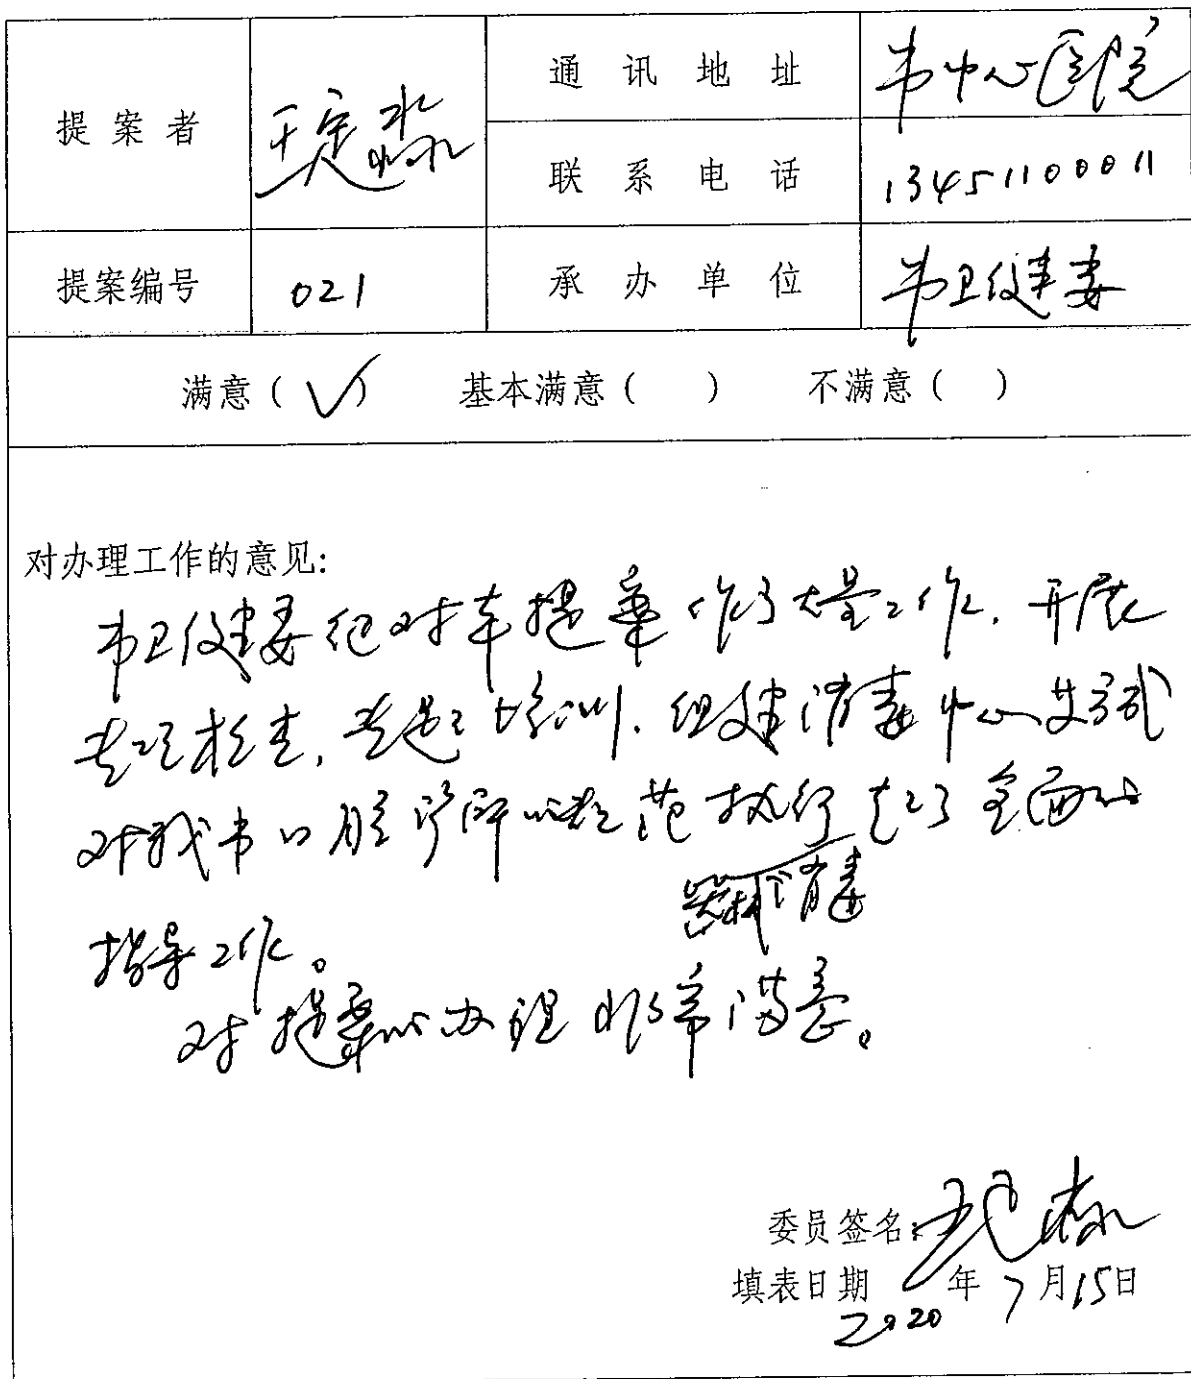 提案者 王定淼 通讯地址 市中心医院
联系电话 13451100011
提案编号 021 承办单位 市卫健委
满意(√) 基本满意( ) 不满意( )
对办理工作的意见:
市卫健委针对本提案作了大量工作,开展
专项检查,专题培训,组建消毒中心等方式
对我市口腔诊所的规范执行走了全面的
器械消毒
指导工作。
对提案的办理非常满意。
委员签名:王定淼
填表日期 2020年7月15日